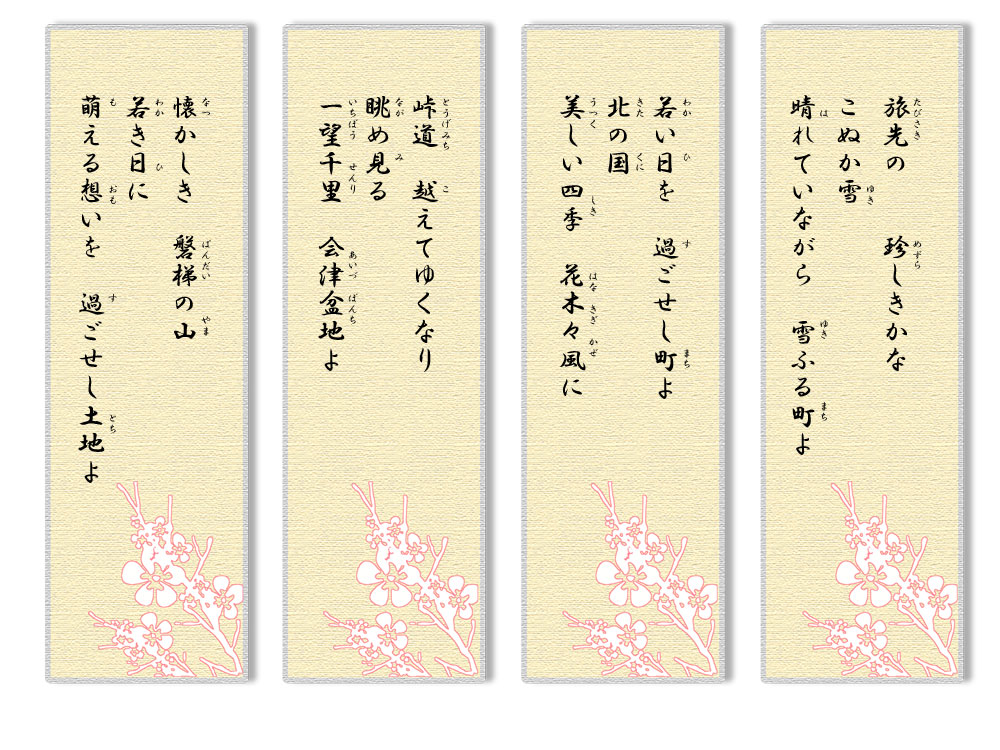 旅先の　珍しきかな
こぬか雪
晴れていながら　雪ふる町よ
若い日を　過ごせし町よ
北の国
美しい四季　花木々風に
峠道　越えてゆくなり
眺め見る
一望千里　会津盆地よ
懐かしき　磐梯の山
若き日に
萌える想いを　過ごせし土地よ